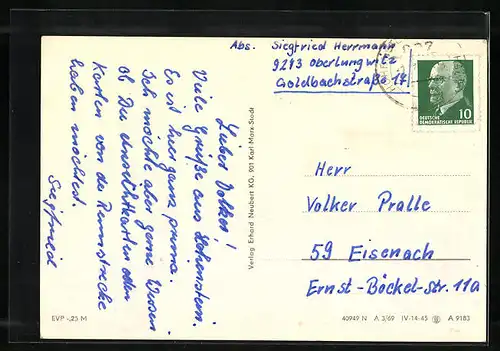 Abs. Siegfried Herrmann
9273 Oberlungwitz
Goldbachstraße 17
DEUTSCHE
DEMOKRATISCHE REPUBLIK
10
Lieber Volker!
Viele Grüße aus Hohenstein.
Es ist hier ganz prima.
Ich möchte aber gerne Wissen
ob Du Ansichtkarten oder
Karten von der Rennstrecke
haben möchtest.
Siegfried
Verlag Erhard Neubert KG, 901 Karl-Marx-Stadt
Herr
Volker Pralle
59 Eisenach
Ernst-Böckel-str. 11a
EVP -,25 M
40949 N A 3/69 IV-14-45 A 9183